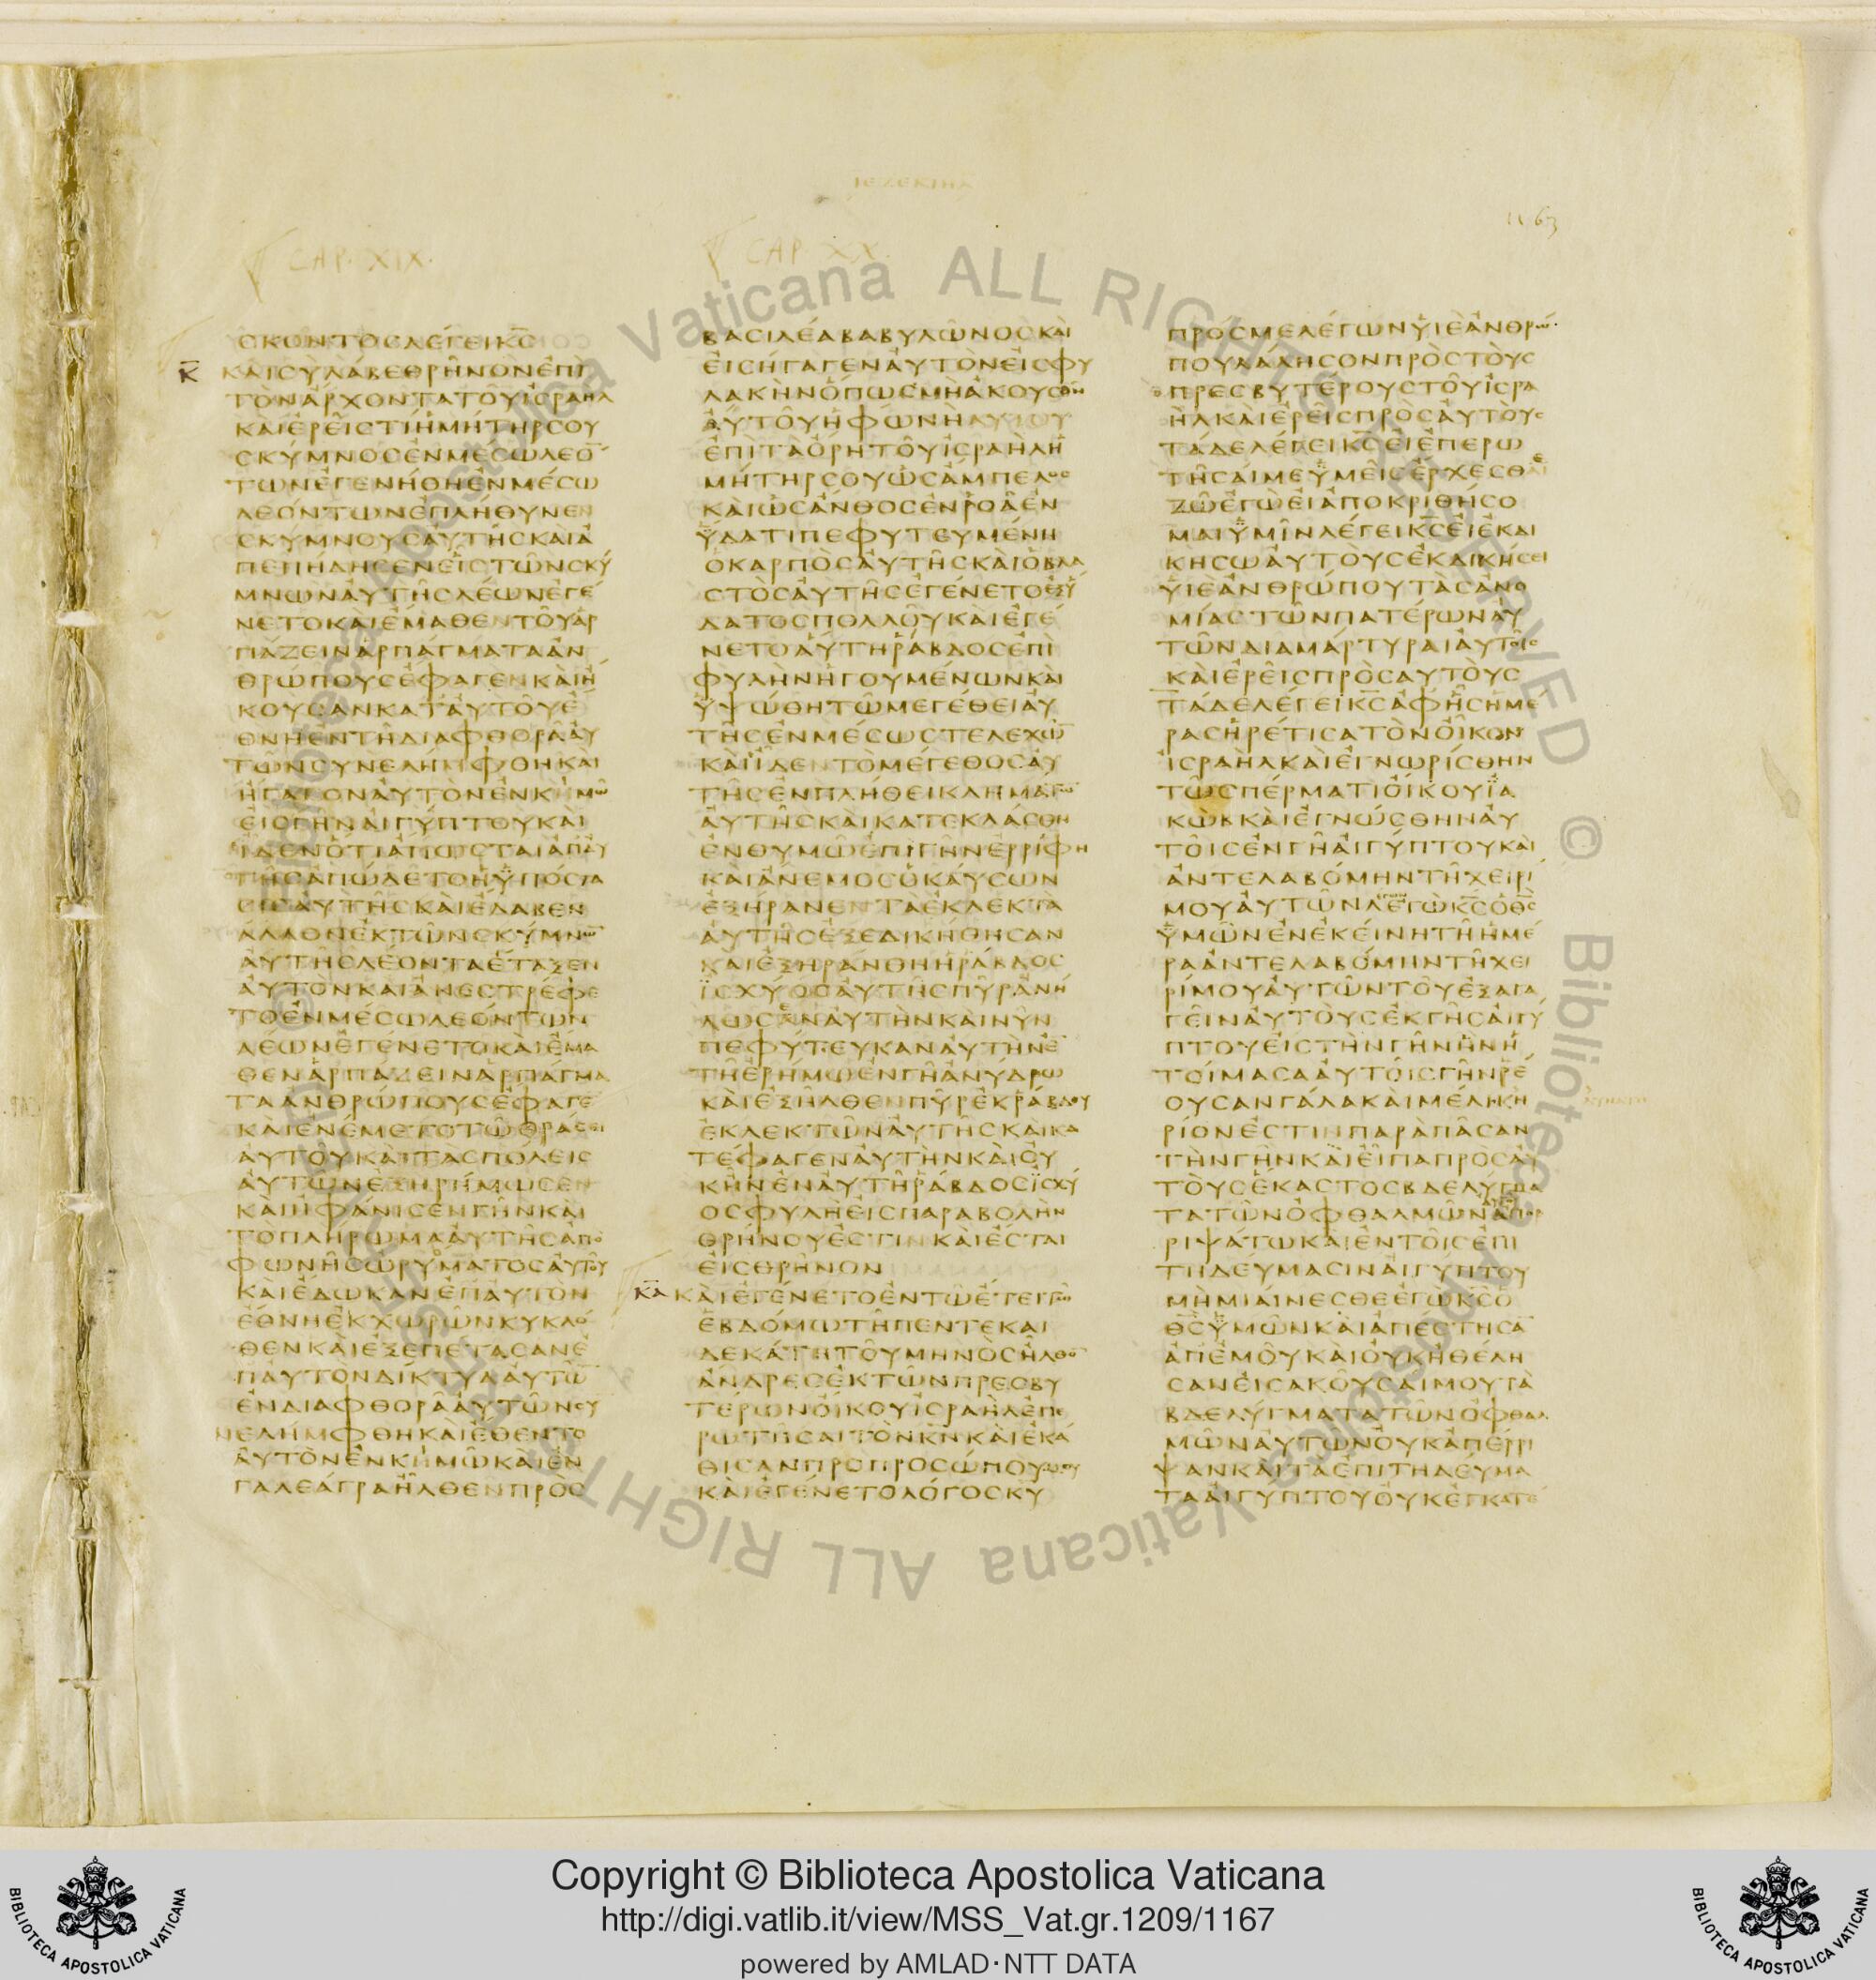 ΙΕΖΕΚΙΗΛ
1163
CAP. XIX.
CAP. XX.
ΣΚΟΝΤΟΣ ΛΕΓΕΙ ΚΣ
Κ ΚΑΙ ΣΥ ΛΑΒΕ ΘΡΗΝΟΝ ΕΠΙ
ΤΟΝ ΑΡΧΟΝΤΑ ΤΟΥ ΙΣΡΑΗΛ
ΚΑΙ ΕΡΕΙΣ ΤΙ Η ΜΗΤΗΡ ΣΟΥ
ΣΚΥΜΝΟΣ ΕΝ ΜΕΣΩ ΛΕΟ
ΤΩΝ ΕΓΕΝΗΘΗ ΕΝ ΜΕΣΩ
ΛΕΟΝΤΩΝ ΕΠΛΗΘΥΝΕΝ
ΣΚΥΜΝΟΥΣ ΑΥΤΗΣ ΚΑΙ Α
ΠΕΠΗΔΗΣΕΝ ΕΙΣ ΤΩΝ ΣΚΥ
ΜΝΩΝ ΑΥΤΗΣ ΛΕΩΝ ΕΓΕ
ΝΕΤΟ ΚΑΙ ΕΜΑΘΕΝ ΤΟΥ ΑΡ
ΠΑΖΕΙΝ ΑΡΠΑΓΜΑΤΑ ΑΝ
ΘΡΩΠΟΥΣ ΕΦΑΓΕΝ ΚΑΙ Η
ΚΟΥΣΑΝ ΚΑΤ ΑΥΤΟΥ Ε
ΘΝΗ ΕΝ ΤΗ ΔΙΑΦΘΟΡΑ ΑΥ
ΤΩΝ ΣΥΝΕΛΗΜΦΘΗ ΚΑΙ
ΗΓΑΓΟΝ ΑΥΤΟΝ ΕΝ ΚΗΜΩ
ΕΙΣ ΓΗΝ ΑΙΓΥΠΤΟΥ ΚΑΙ
ΙΔΕΝ ΟΤΙ ΑΠΩΣΤΑΙ ΑΠ ΑΥ
ΤΗΣ ΑΠΩΛΕΤΟ Η ΥΠΟΣΤΑ
ΣΙΣ ΑΥΤΗΣ ΚΑΙ ΕΛΑΒΕΝ
ΑΛΛΟΝ ΕΚ ΤΩΝ ΣΚΥΜΝΩ
ΑΥΤΗΣ ΛΕΟΝΤΑ ΕΤΑΞΕΝ
ΑΥΤΟΝ ΚΑΙ ΑΝΕΣΤΡΕΦΕ
ΤΟ ΕΝ ΜΕΣΩ ΛΕΟΝΤΩΝ
ΛΕΩΝ ΕΓΕΝΕΤΟ ΚΑΙ ΕΜΑ
ΘΕΝ ΑΡΠΑΖΕΙΝ ΑΡΠΑΓΜΑ
ΤΑ ΑΝΘΡΩΠΟΥΣ ΕΦΑΓΕ
ΚΑΙ ΕΝΕΜΕΤΟ ΤΩ ΘΡΑΣΕΙ
ΑΥΤΟΥ ΚΑΙ ΤΑΣ ΠΟΛΕΙΣ
ΑΥΤΩΝ ΕΞΗΡΗΜΩΣΕΝ
ΚΑΙ ΗΦΑΝΙΣΕΝ ΓΗΝ ΚΑΙ
ΤΟ ΠΛΗΡΩΜΑ ΑΥΤΗΣ ΑΠΟ
ΦΩΝΗΣ ΩΡΥΜΑΤΟΣ ΑΥΤΟΥ
ΚΑΙ ΕΔΩΚΑΝ ΕΠ ΑΥΤΟΝ
ΕΘΝΗ ΕΚ ΧΩΡΩΝ ΚΥΚΛΟ
ΘΕΝ ΚΑΙ ΕΞΕΠΕΤΑΣΑΝ Ε
Π ΑΥΤΟΝ ΔΙΚΤΥΑ ΑΥΤΩ
ΕΝ ΔΙΑΦΘΟΡΑ ΑΥΤΩΝ ΣΥ
ΝΕΛΗΜΦΘΗ ΚΑΙ ΕΘΕΝΤΟ
ΑΥΤΟΝ ΕΝ ΚΗΜΩ ΚΑΙ ΕΝ
ΓΑΛΕΑΓΡΑ ΗΛΘΕΝ ΠΡΟΣ
ΒΑΣΙΛΕΑ ΒΑΒΥΛΩΝΟΣ ΚΑΙ
ΕΙΣΗΓΑΓΕΝ ΑΥΤΟΝ ΕΙΣ ΦΥ
ΛΑΚΗΝ ΟΠΩΣ ΜΗ ΑΚΟΥΣΘΗ
ΑΥΤΟΥ Η ΦΩΝΗ ΑΥΤΟΥ
ΕΠΙ ΤΑ ΟΡΗ ΤΟΥ ΙΣΡΑΗΛ Η
ΜΗΤΗΡ ΣΟΥ ΩΣ ΑΜΠΕΛΟΣ
ΚΑΙ ΩΣ ΑΝΘΟΣ ΕΝ ΡΟΑ ΕΝ
ΥΔΑΤΙ ΠΕΦΥΤΕΥΜΕΝΗ
Ο ΚΑΡΠΟΣ ΑΥΤΗΣ ΚΑΙ Ο ΒΛΑ
ΣΤΟΣ ΑΥΤΗΣ ΕΓΕΝΕΤΟ ΕΞ Υ
ΔΑΤΟΣ ΠΟΛΛΟΥ ΚΑΙ ΕΓΕ
ΝΕΤΟ ΑΥΤΗ ΡΑΒΔΟΣ ΕΠΙ
ΦΥΛΗΝ ΗΓΟΥΜΕΝΩΝ ΚΑΙ
ΥΨΩΘΗ ΤΩ ΜΕΓΕΘΕΙ ΑΥ
ΤΗΣ ΕΝ ΜΕΣΩ ΣΤΕΛΕΧΩ
ΚΑΙ ΙΔΕΝ ΤΟ ΜΕΓΕΘΟΣ ΑΥ
ΤΗΣ ΕΝ ΠΛΗΘΕΙ ΚΛΗΜΑΤΩ
ΑΥΤΗΣ ΚΑΙ ΚΑΤΕΚΛΑΣΘΗ
ΕΝ ΘΥΜΩ ΕΠΙ ΓΗΝ ΕΡΡΙΦΗ
ΚΑΙ ΑΝΕΜΟΣ Ο ΚΑΥΣΩΝ
ΕΞΗΡΑΝΕΝ ΤΑ ΕΚΛΕΚΤΑ
ΑΥΤΗΣ ΕΞΕΔΙΚΗΘΗΣΑΝ
ΚΑΙ ΕΞΗΡΑΝΘΗ Η ΡΑΒΔΟΣ
ΙΣΧΥΟΣ ΑΥΤΗΣ ΠΥΡ ΑΝΗ
ΛΩΣΕΝ ΑΥΤΗΝ ΚΑΙ ΝΥΝ
ΠΕΦΥΤΕΥΚΑΝ ΑΥΤΗΝ Ε
Τ ΤΗ ΕΡΗΜΩ ΕΝ ΓΗ ΑΝΥΔΡΩ
ΚΑΙ ΕΞΗΛΘΕΝ ΠΥΡ ΕΚ ΡΑΒΔΟΥ
ΕΚΛΕΚΤΩΝ ΑΥΤΗΣ ΚΑΙ ΚΑ
ΤΕΦΑΓΕΝ ΑΥΤΗΝ ΚΑΙ ΟΥ
Κ ΗΝ ΕΝ ΑΥΤΗ ΡΑΒΔΟΣ ΙΣΧΥ
ΟΣ ΦΥΛΗ ΕΙΣ ΠΑΡΑΒΟΛΗΝ
ΘΡΗΝΟΥ ΕΣΤΙΝ ΚΑΙ ΕΣΤΑΙ
ΕΙΣ ΘΡΗΝΟΝ
ΚΑ ΚΑΙ ΕΓΕΝΕΤΟ ΕΝ ΤΩ ΕΤΕΙ ΤΩ
ΕΒΔΟΜΩ ΤΗ ΠΕΝΤΕΚΑΙ
ΔΕΚΑΤΗ ΤΟΥ ΜΗΝΟΣ ΗΛΘΟ
ΑΝΔΡΕΣ ΕΚ ΤΩΝ ΠΡΕΣΒΥ
ΤΕΡΩΝ ΟΙΚΟΥ ΙΣΡΑΗΛ ΕΠΕ
ΡΩΤΗΣΑΙ ΤΟΝ ΚΝ ΚΑΙ ΕΚΑ
ΘΙΣΑΝ ΠΡΟ ΠΡΟΣΩΠΟΥ ΜΟΥ
ΚΑΙ ΕΓΕΝΕΤΟ ΛΟΓΟΣ ΚΥ
ΠΡΟΣ ΜΕ ΛΕΓΩΝ ΥΙΕ ΑΝΘΡΩ
ΠΟΥ ΛΑΛΗΣΟΝ ΠΡΟΣ ΤΟΥΣ
ΠΡΕΣΒΥΤΕΡΟΥΣ ΤΟΥ ΙΣΡΑ
ΗΛ ΚΑΙ ΕΡΕΙΣ ΠΡΟΣ ΑΥΤΟΥΣ
ΤΑΔΕ ΛΕΓΕΙ ΚΣ ΕΙ ΕΠΕΡΩ
ΤΗΣΑΙ ΜΕ ΥΜΕΙΣ ΕΡΧΕΣΘΑΙ
ΖΩ ΕΓΩ ΕΙ ΑΠΟΚΡΙΘΗΣΟ
ΜΑΙ ΥΜΙΝ ΛΕΓΕΙ ΚΣ ΕΙ ΕΚΔΙ
ΚΗΣΩ ΑΥΤΟΥΣ ΕΚΔΙΚΗΣΕΙ
ΥΙΕ ΑΝΘΡΩΠΟΥ ΤΑΣ ΑΝΟ
ΜΙΑΣ ΤΩΝ ΠΑΤΕΡΩΝ ΑΥ
ΤΩΝ ΔΙΑΜΑΡΤΥΡΑΙ ΑΥΤΟΙΣ
ΚΑΙ ΕΡΕΙΣ ΠΡΟΣ ΑΥΤΟΥΣ
ΤΑΔΕ ΛΕΓΕΙ ΚΣ ΑΦ ΗΣ ΗΜΕ
ΡΑΣ ΗΡΕΤΙΣΑ ΤΟΝ ΟΙΚΟΝ
ΙΣΡΑΗΛ ΚΑΙ ΕΓΝΩΡΙΣΘΗΝ
ΤΩ ΣΠΕΡΜΑΤΙ ΟΙΚΟΥ ΙΑ
ΚΩΒ ΚΑΙ ΕΓΝΩΣΘΗΝ ΑΥ
ΤΟΙΣ ΕΝ ΓΗ ΑΙΓΥΠΤΟΥ ΚΑΙ
ΑΝΤΕΛΑΒΟΜΗΝ ΤΗ ΧΕΙΡΙ
ΜΟΥ ΑΥΤΩΝ ΛΕΓΩΝ ΕΓΩ ΚΣ Ο ΘΣ
ΥΜΩΝ ΕΝ ΕΚΕΙΝΗ ΤΗ ΗΜΕ
ΡΑ ΑΝΤΕΛΑΒΟΜΗΝ ΤΗ ΧΕΙ
ΡΙ ΜΟΥ ΑΥΤΩΝ ΤΟΥ ΕΞΑΓΑ
ΓΕΙΝ ΑΥΤΟΥΣ ΕΚ ΓΗΣ ΑΙΓΥ
ΠΤΟΥ ΕΙΣ ΤΗΝ ΓΗΝ ΗΝ Η
ΤΟΙΜΑΣΑ ΑΥΤΟΙΣ ΓΗΝ ΡΕ
ΟΥΣΑΝ ΓΑΛΑ ΚΑΙ ΜΕΛΙ ΚΗ
ΡΙΟΝ ΕΣΤΙΝ ΠΑΡΑ ΠΑΣΑΝ
ΤΗΝ ΓΗΝ ΚΑΙ ΕΙΠΑ ΠΡΟΣ ΑΥ
ΤΟΥΣ ΕΚΑΣΤΟΣ ΒΔΕΛΥΓΜΑ
ΤΑ ΤΩΝ ΟΦΘΑΛΜΩΝ ΑΠΟΡ
ΡΙΨΑΤΩ ΚΑΙ ΕΝ ΤΟΙΣ ΕΠΙ
ΤΗΔΕΥΜΑΣΙΝ ΑΙΓΥΠΤΟΥ
ΜΗ ΜΙΑΙΝΕΣΘΕ ΕΓΩ ΚΣ Ο
ΘΣ ΥΜΩΝ ΚΑΙ ΑΠΕΣΤΗΣΑ
ΑΠ ΕΜΟΥ ΚΑΙ ΟΥΚ ΗΘΕΛΗ
ΣΑΝ ΕΙΣΑΚΟΥΣΑΙ ΜΟΥ ΤΑ
ΒΔΕΛΥΓΜΑΤΑ ΤΩΝ ΟΦΘΑΛ
ΜΩΝ ΑΥΤΩΝ ΟΥΚ ΑΠΕΡΡΙ
ΨΑΝ ΚΑΙ ΤΑ ΕΠΙΤΗΔΕΥΜΑ
ΤΑ ΑΙΓΥΠΤΟΥ ΟΥΚ ΕΓΚΑΤΕ
Biblioteca Apostolica Vaticana ALL RIGHTS RESERVED ©
Copyright © Biblioteca Apostolica Vaticana
http://digi.vatlib.it/view/MSS_Vat.gr.1209/1167
powered by AMLAD·NTT DATA
BIBLIOTECA APOSTOLICA VATICANA
BIBLIOTECA APOSTOLICA VATICANA